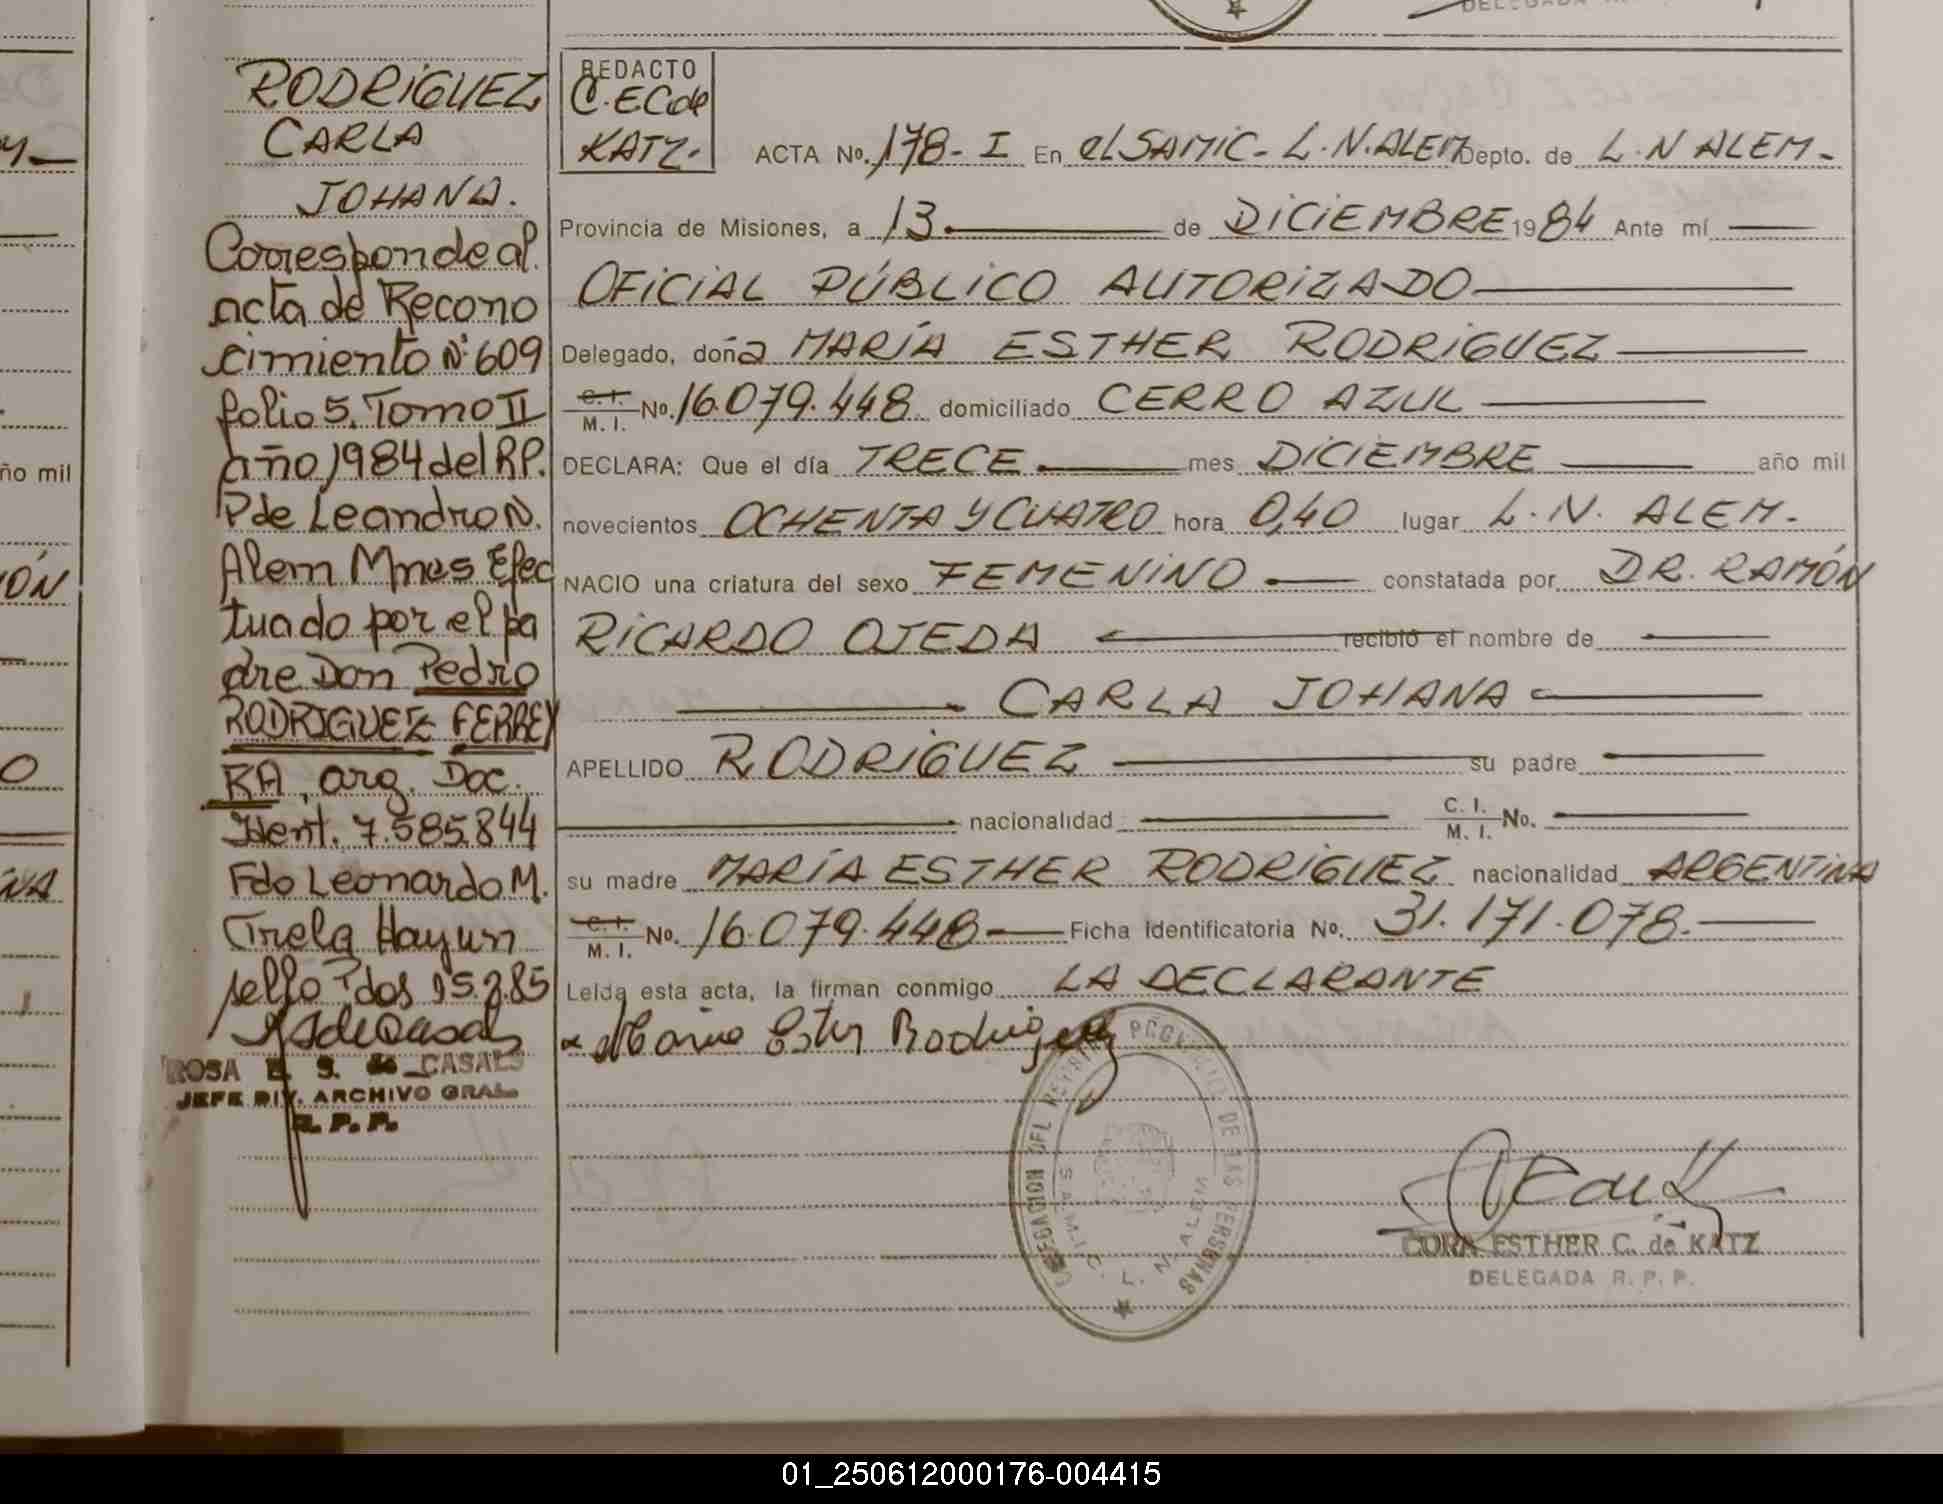 DELEGADA
RODRIGUEZ
CARLA
JOHANA.
Corresponde al
acta de Recono
cimiento Nº 609
folio 5. Tomo II
año 1984 del R.P.
P de Leandro N.
Alem Mnes Efec
tuado por el pa
dre Don Pedro
RODRIGUEZ FERREY
RA, arg. Doc.
Ident. 7.585.844
Fdo Leonardo M.
sello Pdos
ROSA E. S. de CASALS
JEFE DIV. ARCHIVO GRAL
R. P. P.
REDACTO
C. EC de
KATZ.
ACTA Nº. 178-I En el SAMIC- L.N.ALEM Depto. de L.N ALEM-
Provincia de Misiones, a 13 de DICIEMBRE 1984 Ante mí
OFICIAL PÚBLICO AUTORIZADO
Delegado, doña MARÍA ESTHER RODRIGUEZ
C. I.
M. I. Nº. 16.079.448 domiciliado CERRO AZUL
DECLARA: Que el día TRECE mes DICIEMBRE año mil
novecientos OCHENTA Y CUATRO hora 0,40 lugar L. N. ALEM-
NACIO una criatura del sexo FEMENINO constatada por DR. RAMÓN
RICARDO OJEDA recibió el nombre de
CARLA JOHANA
APELLIDO RODRIGUEZ su padre
nacionalidad C. I.
M. I. No.
su madre MARÍA ESTHER RODRIGUEZ nacionalidad ARGENTINA
C. I.
M. I. No. 16.079.448 Ficha Identificatoria Nº. 31.171.078.
Leída esta acta, la firman conmigo LA DECLARANTE
DELEGACION DEL REGISTRO PROVINCIAL DE LAS PERSONAS
S.A.M.I.C. L. N. ALEM
CORA ESTHER C. de KATZ
DELEGADA R. P. P.
ño mil
ÓN
O
NA
01_250612000176-004415